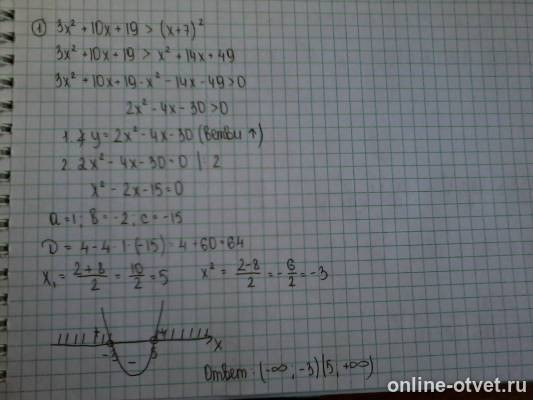 ① 3x² + 10x + 19 > (x+7)²
3x² + 10x + 19 > x² + 14x + 49
3x² + 10x + 19 - x² - 14x - 49 > 0
2x² - 4x - 30 > 0
1. y = 2x² - 4x - 30 (ветви ↑)
2. 2x² - 4x - 30 = 0 | 2
x² - 2x - 15 = 0
a = 1; b = -2; c = -15
D = 4 - 4 · 1 · (-15) = 4 + 60 = 64
x₁ = (2+8)/2 = 10/2 = 5 x² = (2-8)/2 = -6/2 = -3
+ +
-3 - 5 x
Ответ: (-∞, -3)(5, +∞)
online-otvet.ru